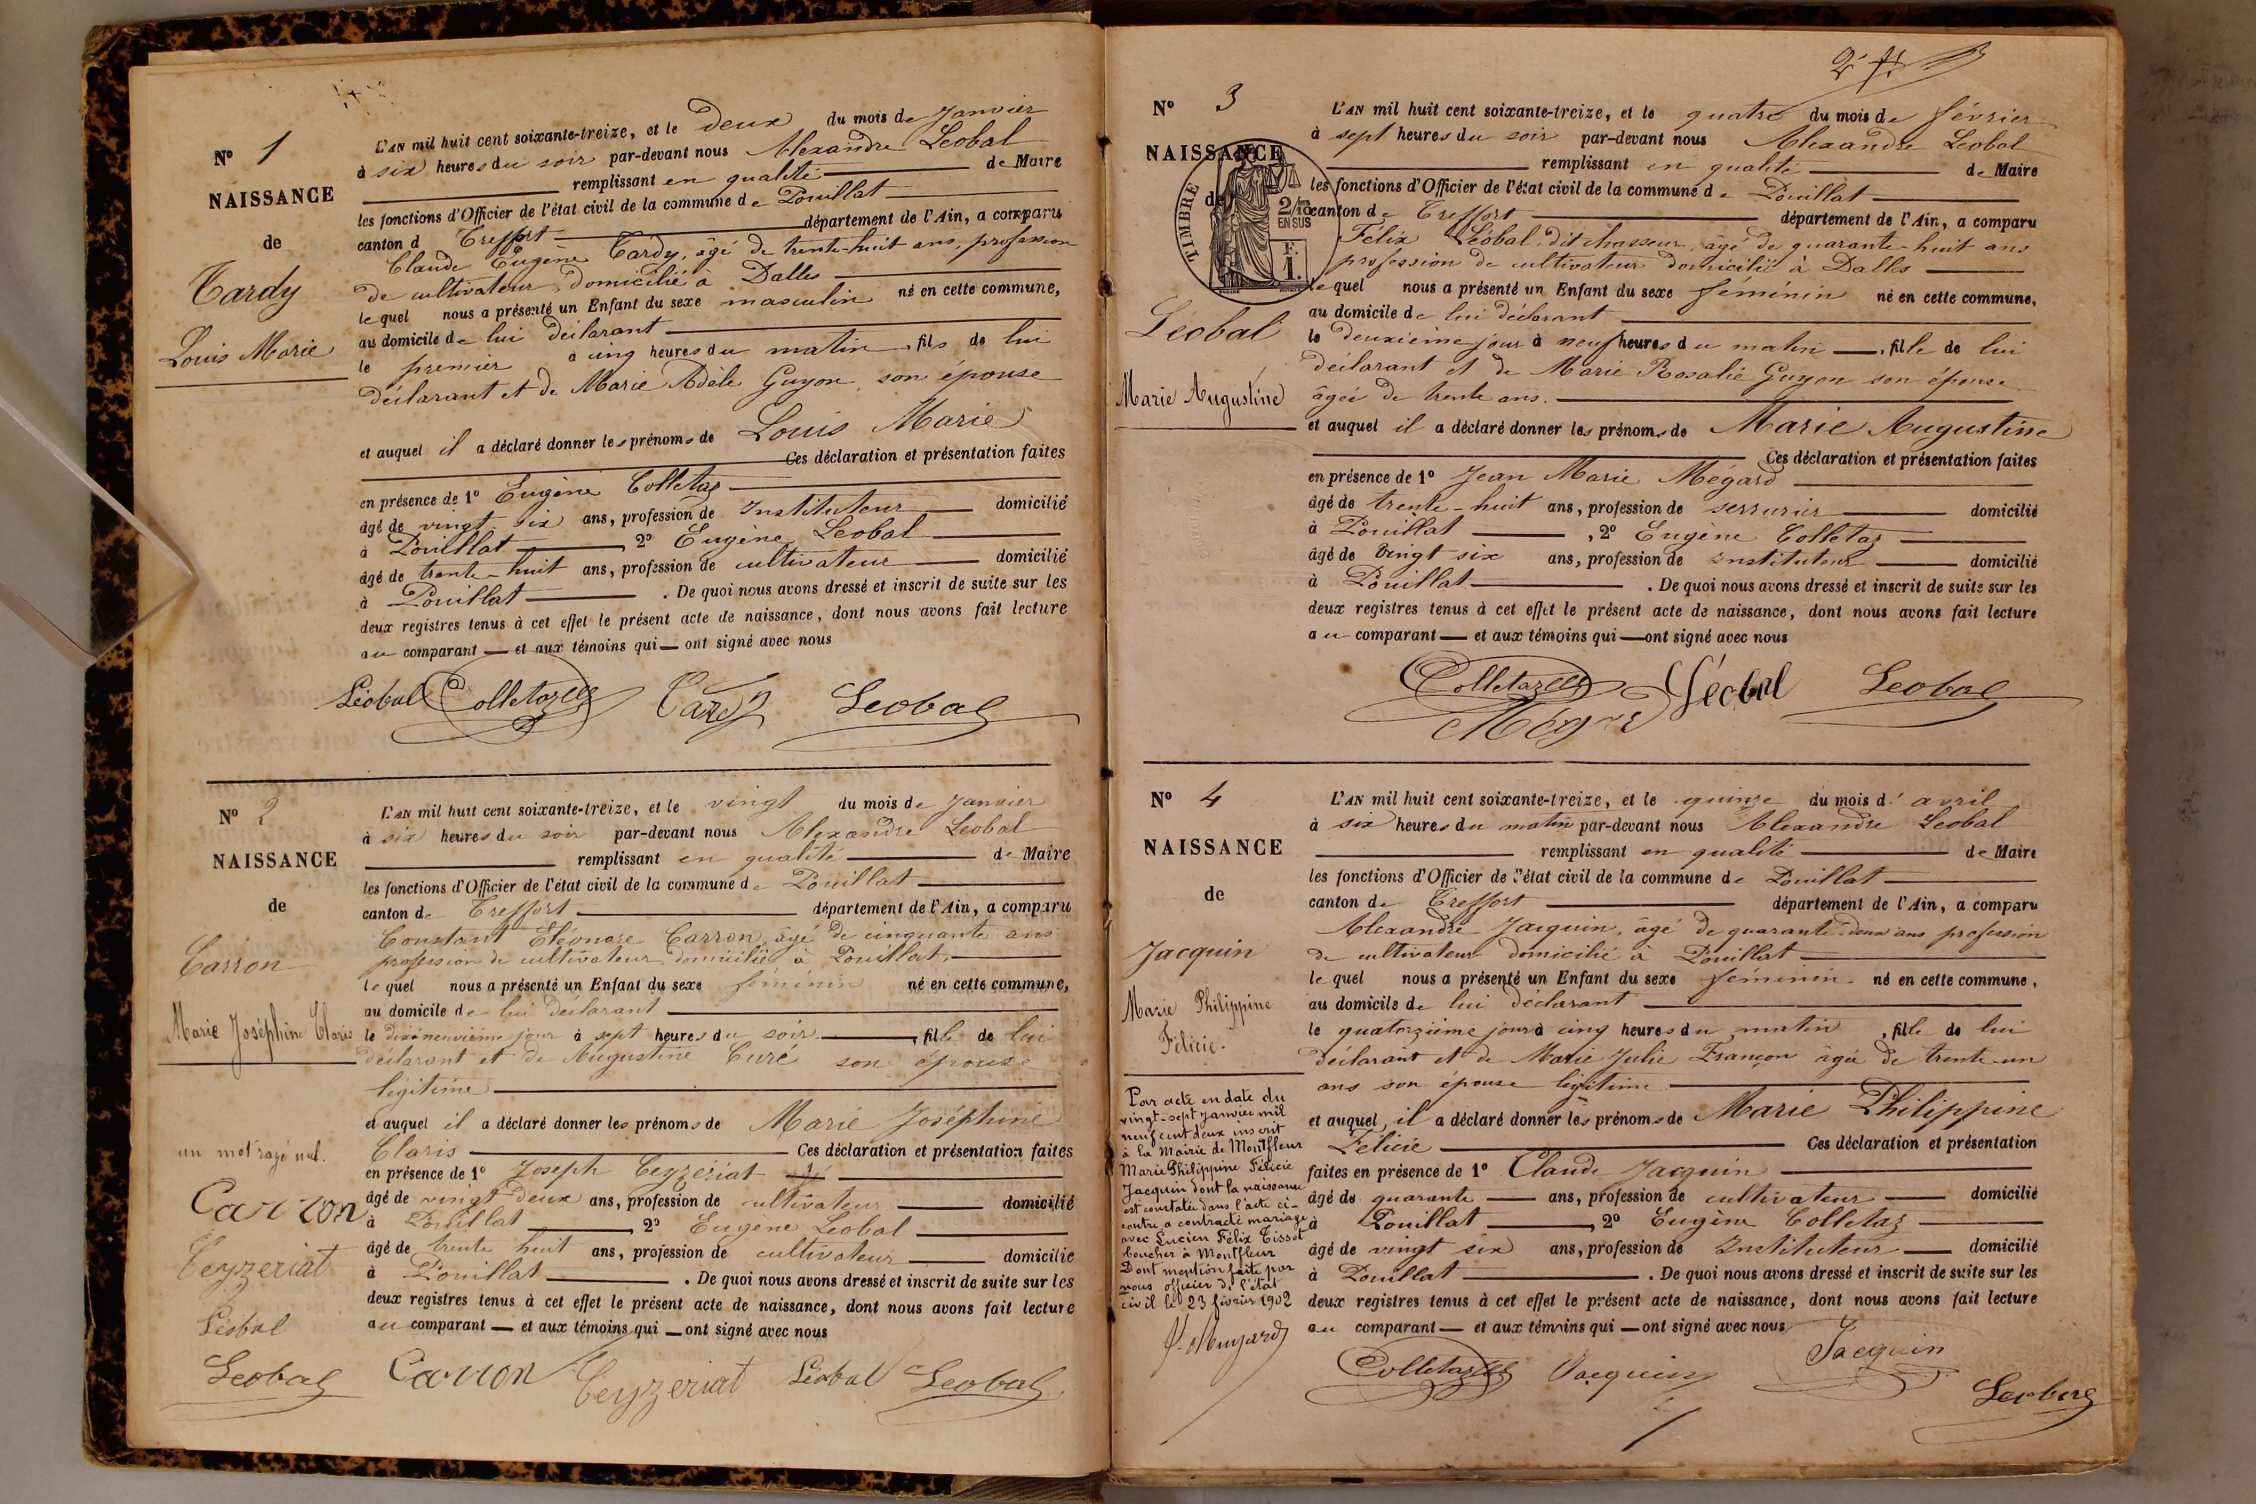 N° 1
NAISSANCE
de
Tardy
Louis Marie
L'AN mil huit cent soixante-treize, et le deux du mois de Janvier
à six heures du soir par-devant nous Alexandre Léobal
remplissant en qualité de Maire
les fonctions d'Officier de l'état civil de la commune de Pouillat
canton d Treffort département de l'Ain, a comparu
Claude Eugène Tardy, âgé de trente-huit ans, profession
de cultivateur domicilié à Dalles
le quel nous a présenté un Enfant du sexe masculin né en cette commune,
au domicile de lui déclarant
le premier à cinq heures du matin, fils de lui
déclarant et de Marie Adèle Guyon, son épouse
et auquel il a déclaré donner les prénoms de Louis Marie
Ces déclaration et présentation faites
en présence de 1° Eugène Colletaz
âgé de vingt six ans, profession de Instituteur domicilié
à Pouillat, 2° Eugène Léobal
âgé de trente-huit ans, profession de cultivateur domicilié
à Pouillat. De quoi nous avons dressé et inscrit de suite sur les
deux registres tenus à cet effet le présent acte de naissance, dont nous avons fait lecture
au comparant et aux témoins qui ont signé avec nous
Léobal Colletaz Tardy Leobal
N° 2
NAISSANCE
de
Carron
Marie Joséphine Claris
un mot rayé nul.
Carron
Ceyzeriat
Léobal
Leobal
L'AN mil huit cent soixante-treize, et le vingt du mois de Janvier
à six heures du soir par-devant nous Alexandre Leobal
remplissant en qualité de Maire
les fonctions d'Officier de l'état civil de la commune de Pouillat
canton de Treffort département de l'Ain, a comparu
Constant Eléonore Carron, âgé de cinquante ans
profession de cultivateur domicilié à Pouillat,
le quel nous a présenté un Enfant du sexe féminin né en cette commune,
au domicile de lui déclarant
le dix-neuvième jour à sept heures du soir, fille de lui
déclarant et de Augustine Curé son épouse
légitime
et auquel il a déclaré donner les prénoms de Marie Joséphine
Claris Ces déclaration et présentation faites
en présence de 1° Joseph Ceyzériat
âgé de vingt deux ans, profession de cultivateur domicilié
à Pouillat, 2° Eugène Leobal
âgé de trente huit ans, profession de cultivateur domicilié
à Pouillat. De quoi nous avons dressé et inscrit de suite sur les
deux registres tenus à cet effet le présent acte de naissance, dont nous avons fait lecture
au comparant et aux témoins qui ont signé avec nous
Carron Ceyzeriat Léobal Leobal
N° 3
NAISSANCE
de
TIMBRE
2/10
EN SUS
F.
1.
Léobal
Marie Augustine
L'AN mil huit cent soixante-treize, et le quatre du mois de février
à sept heures du soir par-devant nous Alexandre Léobal
remplissant en qualité de Maire
les fonctions d'Officier de l'état civil de la commune de Pouillat
canton de Treffort département de l'Ain, a comparu
Félix Léobal dit chasseur, âgé de quarante-huit ans
profession de cultivateur domicilié à Dalles
le quel nous a présenté un Enfant du sexe féminin né en cette commune,
au domicile de lui déclarant
le deuxième jour à neuf heures du matin, fille de lui
déclarant et de Marie Rosalie Guyon son épouse
âgée de trente ans.
et auquel il a déclaré donner les prénoms de Marie Augustine
Ces déclaration et présentation faites
en présence de 1° Jean Marie Mégard
âgé de trente-huit ans, profession de serrurier domicilié
à Pouillat, 2° Eugène Colletaz
âgé de vingt six ans, profession de Instituteur domicilié
à Pouillat. De quoi nous avons dressé et inscrit de suite sur les
deux registres tenus à cet effet le présent acte de naissance, dont nous avons fait lecture
au comparant et aux témoins qui ont signé avec nous
Colletaz Léobal Leobal
Mégard
N° 4
NAISSANCE
de
Jacquin
Marie Philippine
Félicie.
Par acte en date du
vingt-sept janvier mil
neuf cent deux inscrit
à la Mairie de Montfleur
Marie Philippine Félicie
Jacquin dont la naissance
est constatée dans l'acte ci-
contre a contracté mariage
avec Lucien Félix Tissot
boucher à Montfleur
Dont mention faite par
nous officier de l'état
civil le 23 février 1902
L'AN mil huit cent soixante-treize, et le quinze du mois d' avril
à six heures du matin par-devant nous Alexandre Leobal
remplissant en qualité de Maire
les fonctions d'Officier de l'état civil de la commune de Pouillat
canton de Treffort département de l'Ain, a comparu
Alexandre Jacquin, âgé de quarante-deux ans profession
de cultivateur domicilié à Pouillat
le quel nous a présenté un Enfant du sexe féminin né en cette commune,
au domicile de lui déclarant
le quatorzième jour à cinq heures du matin, fille de lui
déclarant et de Marie Julie Françon âgée de trente-un
ans son épouse légitime
et auquel il a déclaré donner les prénoms de Marie Philippine
Félicie Ces déclaration et présentation
faites en présence de 1° Claude Jacquin
âgé de quarante ans, profession de cultivateur domicilié
à Pouillat, 2° Eugène Colletaz
âgé de vingt six ans, profession de Instituteur domicilié
à Pouillat. De quoi nous avons dressé et inscrit de suite sur les
deux registres tenus à cet effet le présent acte de naissance, dont nous avons fait lecture
au comparant et aux témoins qui ont signé avec nous
Colletaz Jacquin Jacquin
Leobal